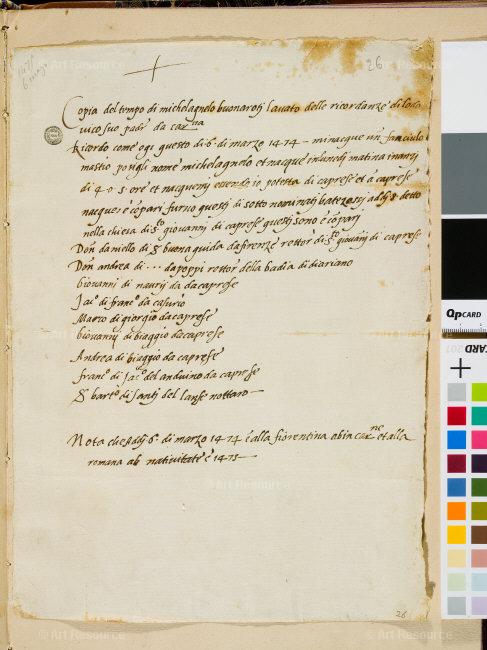 26
Copia del tempo di michelagnelo buonarotj lavato delle ricordanze di lodo
vico suo padr da car na
Ricordo come ogi questo di 6 di marzo 1474 – mi nacque un fanciulo
mastio posigli nome michelagnelo et nacque in lunedj matina inanzj
di 4 o 5 ore et nacquemj essendo io potesta di caprese et a caprese
nacque e cōparj furno questj di sotto nominatj batezossj addj 8 detto
nella chiesa di sto giovannj di caprese questj sono e cōparj
Don daniello di s buonaguida da firenze rettor di sto giovanj di caprese
Don andrea di ... da poppj rettor della badia di diariano
Giovannj di nannj da da caprese
Jaco di franco da casurio
Marco di giorgio da caprese
Giovannj di biaggio da caprese
Andrea di biaggio da caprese
franco di Jaco del anduino da caprese
S barto di santj del lanse nottaro –
Nota che addj 6 di marzo 1474 è alla fiorentina ab incarne et alla
romana ab nativitate è 1475 –
26
QPCARD
© Art Resource
© Art Resource
© Art Resource
© Art Resource